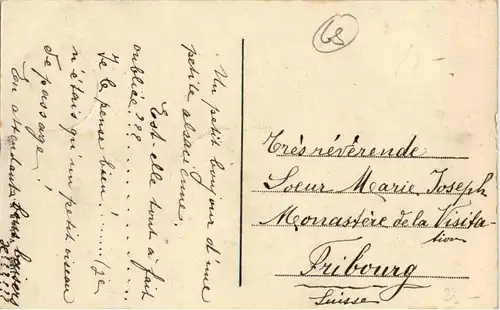 Un petit bonjour d'une
petite alsacienne.
Est-elle tout à fait
oubliée???.........
Je le pense bien!......je
n'étais qu'un petit oiseau
de passage!
En attendant bons baisers
Très révérende
Soeur Marie Joseph
Monastère de la Visita-
tion
Fribourg
Suisse
68